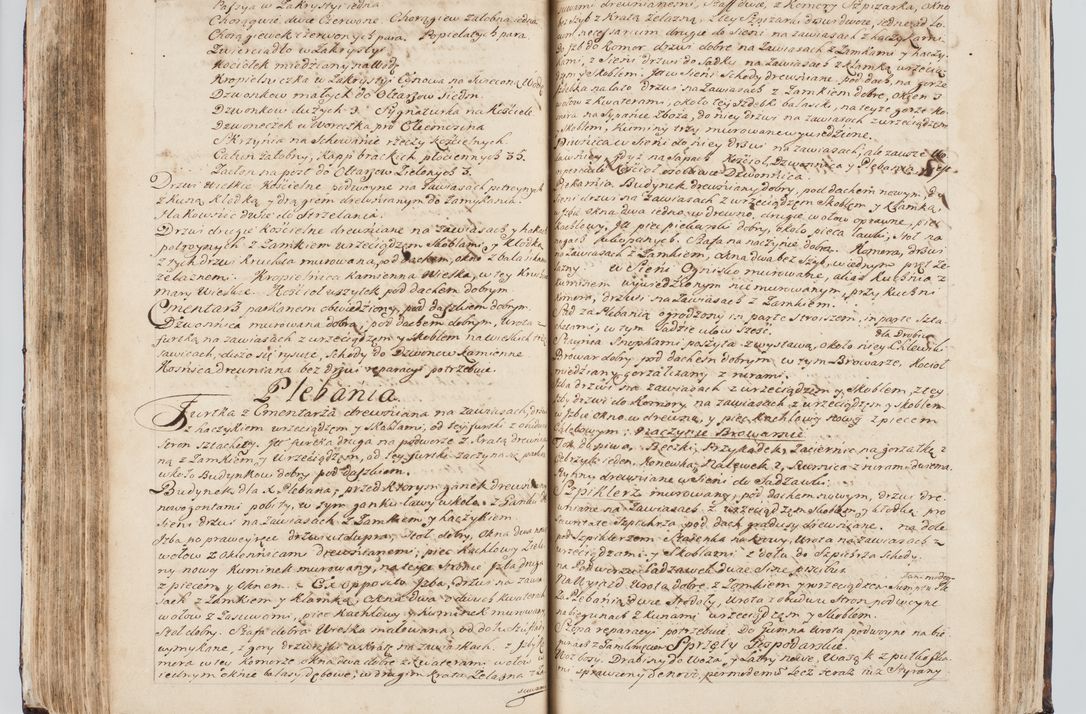 Passya w Zakrystyi iedna
Chorągwie dwie Czerwone. Chorągiew załobna iedna
Chorągiewek czerwonych para. Popielatych para
Zwierciadło w Zakrystyi
Kociołek miedziany na Wodę
Kropielniczka w Zakrystyi Cynowa na Swięconą Wodę
Dzwonkow małych do Ołtarzow siedm.
Dzwonkow dużych 3. Sygnaturka na Kościele
Dzwoneczek u Woreczka pro Eleemosina
Skrzynia na Schowanie rzeczy kościelnych.
Całun żałobny, kapp brackich płociennych 35.
Zasłon na post do Ołtarzow Zielonych 3.
Drzwi Wielkie Kościelne podwoyne na zawiasach potroynych
z kuną kłodką y drągiem drewnianym do zamykania.
Hakownic dwie do strzelania.
Drzwi drugie Kościelne drewniane na zawiasach y hakach
potroynych z Zamkiem wrzeciądzem Skoblami y Kłodką
z tych drzwi Kruchta murowana, pod dachem, okno z balaskami
żelaznemi. Kropielnica kamienna Wielka, w tey Kruchcie
mary Wielkie. Kościoł wszytek pod dachem dobrym
Cmentarz parkanem obwiedziony, pod daszkiem dobrym.
Dzwonnica murowana dobra, pod dachem dobrym, Wrota
furtka na zawiasach z wrzeciądzem y Skoblem na wielkich
zawiasach, dużo się rysuie, Schody do Dzwonow kamienne
Kosnica drewniana bez drzwi reparacyi potrzebuie.
Plebania.
Furtka z Cmentarza drewniana na zawiasach, drzwi
z haczykiem wrzeciądzem y Skoblami, od tey furtki z obudwu
stron sztachety. Jest furtka druga na podworze z Kratą drewnianą
ną z Zamkiem, y Wrzeciądzem, od tey furtki zaczyna się parkan
wkoło Budynkow dobry pod daszkiem.
Budynek dla X. Plebana, przed ktorym ganek drewniany
nowo gontami pobity, w tym ganku ławy wkoło. z Ganku do
Sieni drzwi na zawiasach z Zamkiem y haczykiem.
Izba po prawey ręce drzwi w stupra, Stoł dobry, okna dwa
wołow z okiennicami drewnianemi, piec kachlowy Zielo-
ny nowy kuminek murowany, na teyże stronie Izba druga
z piecem y Oknem. Ex opposito Izba, drzwi na zawia
sach z Zamkiem y Klamką, okna dwa z dwiema kwaterami
w ołow z Zasuwami, piec Kachlowy y Kuminek murowany
Stoł dobry. Szafa dobra Wielka malowana, od dołu
wymykane, z gory drzwiczki w Kratę na zawiasach.
mera w tey komorze okna dwa dobre z kwaterami wołow w
iednym oknie balasy dębowe, w drugim krata żelazna
ścianami drewnianemi, Szaff dwie, z Komory Szpizarka, okno
bez szyb z Kratą żelazną, z tey Szpizarki drzwi dwoie, iedne do lo-
cum necessarium drugie do sieni na zawiasach z haczykami.
Do Izb do Komor drzwi dobre na zawiasach z Zamkami y haczy-
kami, z Sieni drzwi do Sadku na zawiasach z klamką wrzecią-
dzem y Skoblem. Jest w Sieni Schody drewniane pod dach, na gorze
Izdebka na lato drzwi na zawiasach z Zamkiem dobre, okien 3
wołow z kwaterami, około tey Izdebki balaski, na teyże gorze ko-
mora na Sypanie Zboża, do niey drzwi na zawiasach z wrzeciądzem
y Skoblem, kuminy trzy murowane wywiedzione.
Piwnica w Sieni do niey drzwi na zawiasach, ale zawsze Wo-
da w niey gdyż na sapach Kościoł, Dzwonnica y Plebania
Piekarnia Budynek drewniany dobry, pod dachem nowym. Do
Sieni drzwi na zawiasach z wrzeciądzem Skoblem y Klamką,
w Izbie okna dwa iedno w drewno, drugie wołow oprawne, piec
kachlowy, Jest piec piekarski dobry, około pieca ławki, stoł na
nogach wkopanych. Szafa na naczynie dobra. Komora, drzwi
na zawiasach z Zamkiem, okna dwa bez Szyb, w iednym pręt że-
lazny. w Sieni Ognisko murowane, alias kuchnia z
kuminem wywiedzionym nie murowanym, przy kuchni
komora, drzwi na Zawiasach z Zamkiem.
Sad za Plebanią ogrodzony in parte stroiszem, in parte szta
chetami, w tym Sadzie ulow sześć.
Staynia Snopkami poszyta z wystawą, około niey Chlewki dla Drobiu
Browar dobry pod dachem dobrym, w tym Browarze, kocioł
miedziany gorzałczany z rurami.
Izba drzwi na zawiasach z wrzeciądzem y Skoblem, z tey
Izby drzwi do Komory, na zawiasach z wrzeciądzem y Skoblem
w Izbie okno w drewno, y piec kachlowy nowy z piecem
Naczynie Browarne
Tok do piwa. Beczki, Przykadek, Zaciernic na gorzałkę 2
Cebrzyk ieden, Konewka, Nalewek 2, Rurnica z rurami dwiema
Rynny drewniane w Sieni do Sadzawki.
Szpiklerz murowany, pod dachem nowym, drzwi dre-
wniane na Zawiasach z wrzeciądzem Skoblem y kłodką pro
securitate Szpichrza pod dach gradusy drewniane. na dole
pod Szpiklerzem Staienka na krowy, Wrota na zawiasach z
wrzeciądzami y Skoblami z dołu do Szpichrza schody.
Na Podworzu Sadzawek dwie Sine piscibus
Na Wyiezd Wrota dobre, z Zamkiem y wrzeciądzem
Za Plebanią dwie Stodoły, Wrota z obudwu stron podwoyne
na biegunach z kunami wrzeciądzem y Skoblem.
Szopa reparacyi potrzebuie. Do Gumna Wrota podwoyne na bie
gunach z Zamknięciem Sprzęty Gospodarskie.
Woz bosy, Drabiny do Woza, y Łatry nowe, Wasąg z pułkoszka-
mi sprawiony de novo, per modernum lecz teraz niż Stryiany